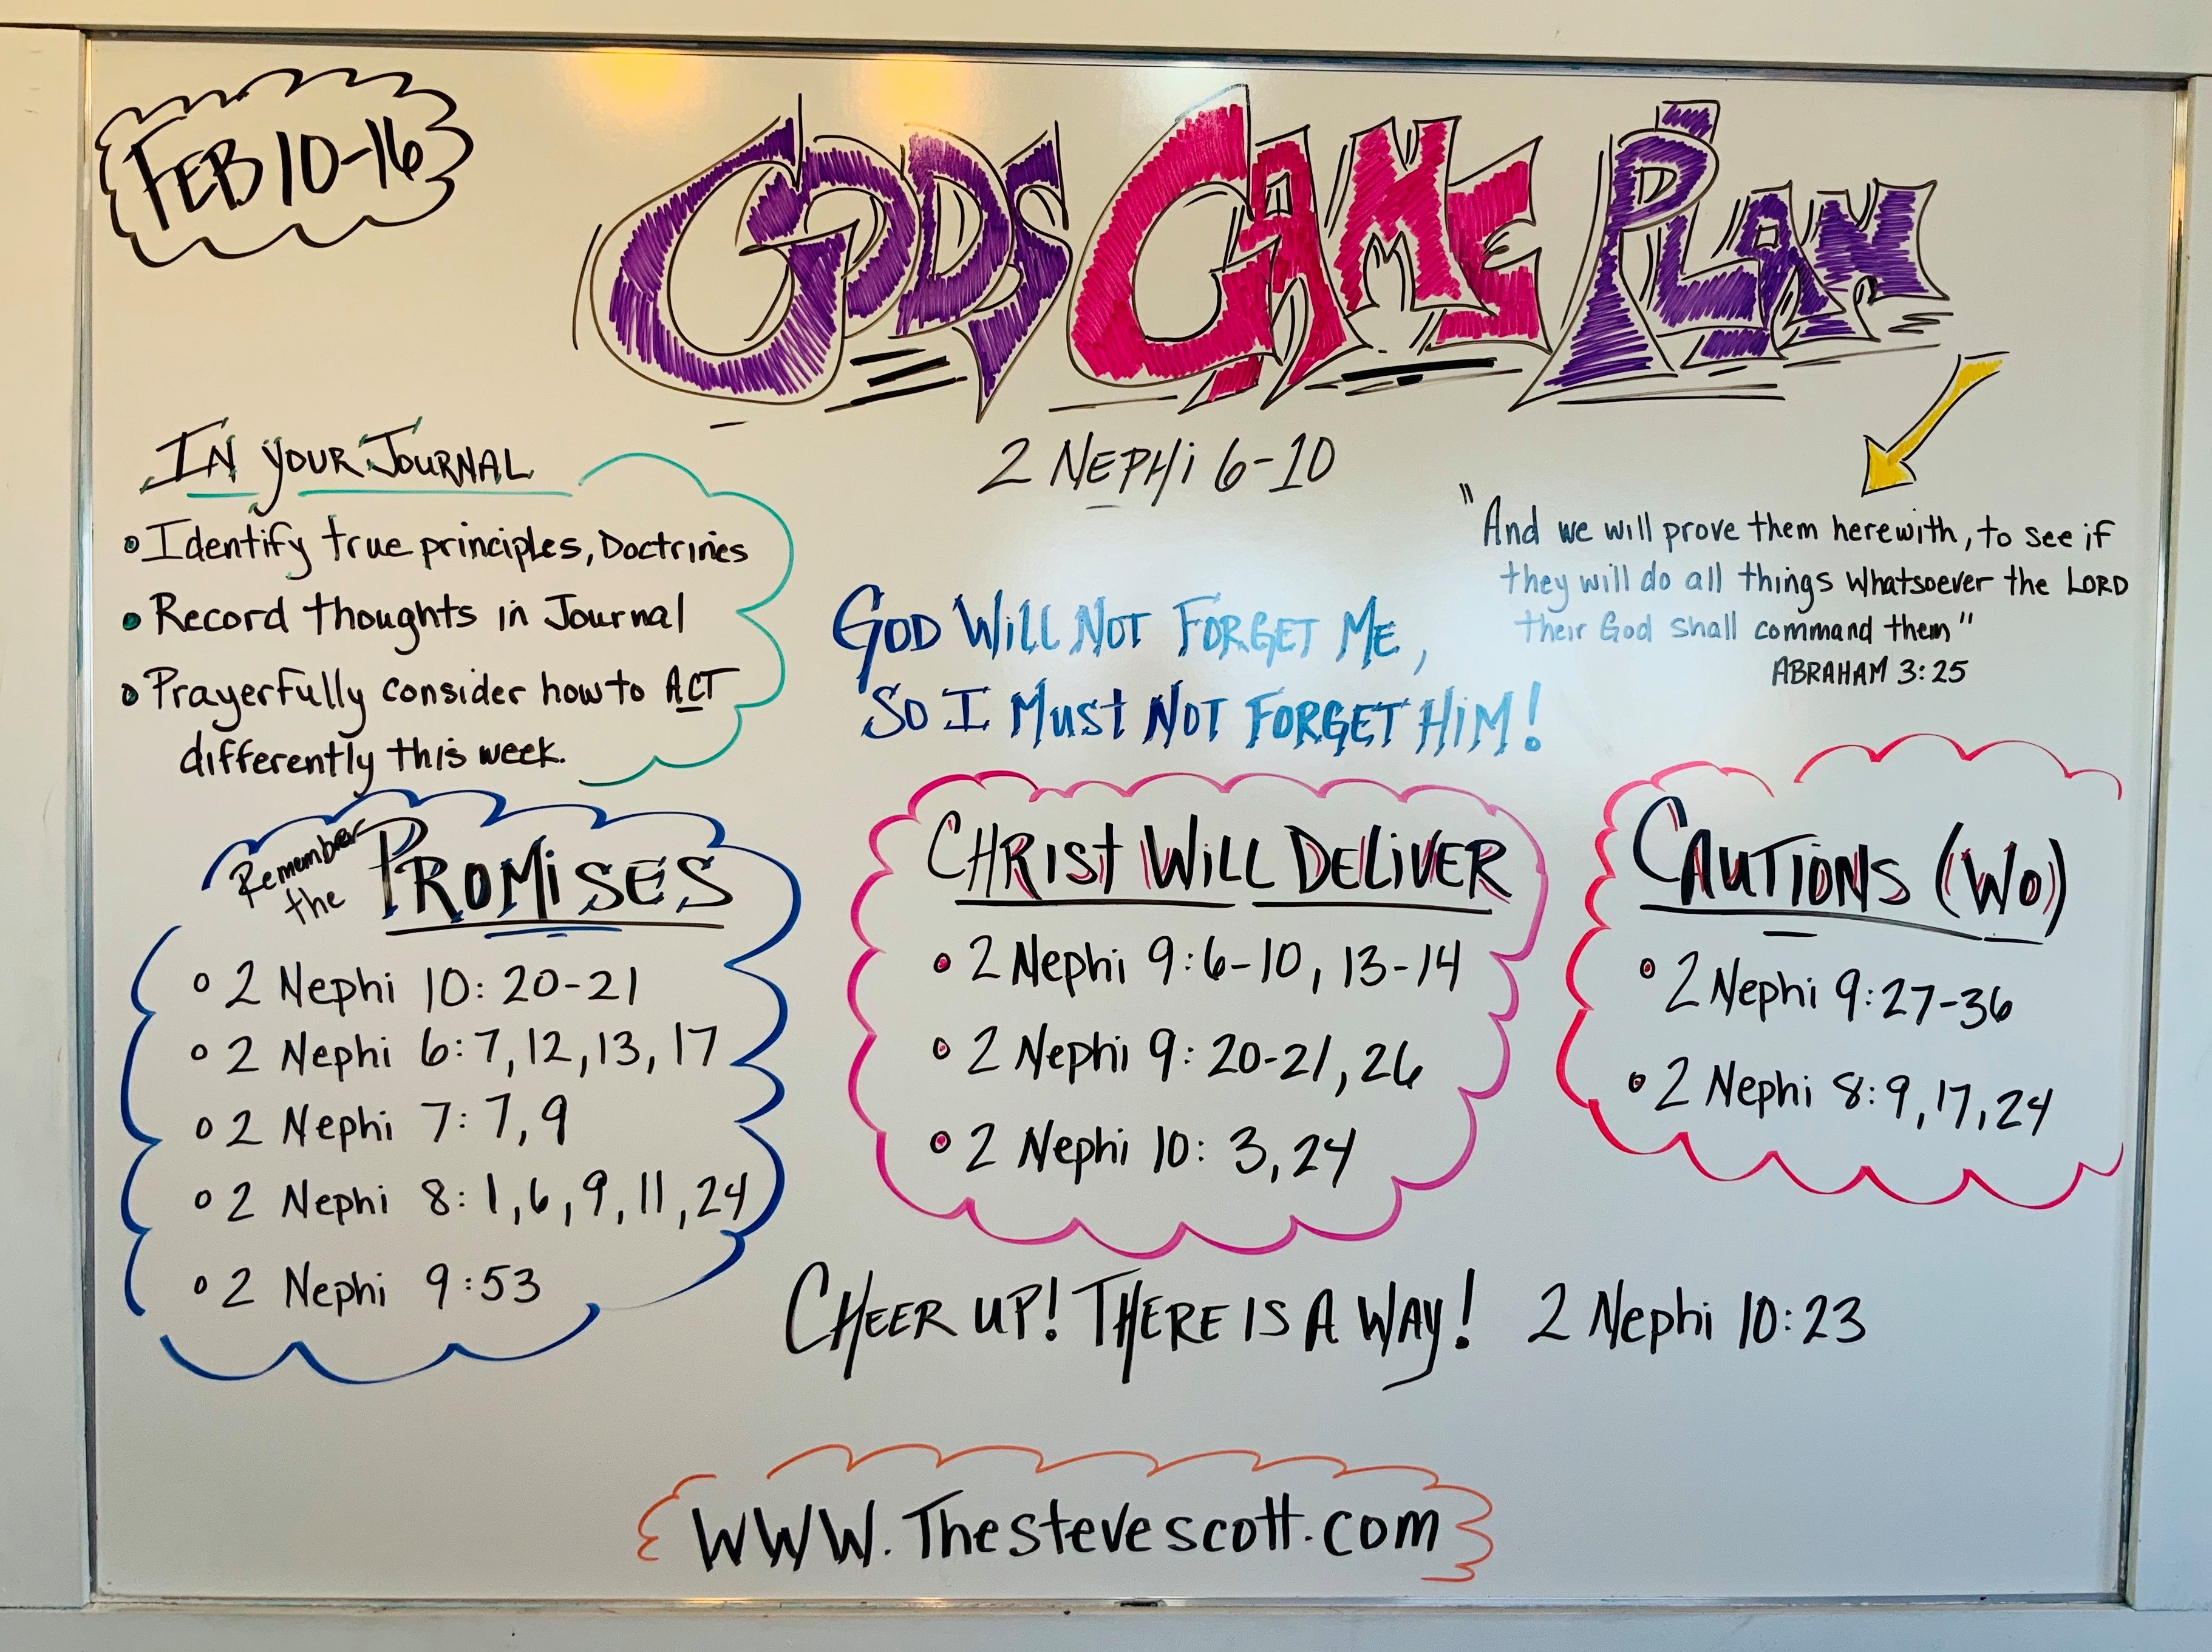 FEB 10-16
GODS GAME PLAN
2 NEPHi 6-10
IN YOUR JOURNAL
• Identify true principles, Doctrines
• Record thoughts in Journal
• Prayerfully consider how to ACT
differently this week.
"And we will prove them herewith, to see if
they will do all things whatsoever the LORD
their God shall command them"
ABRAHAM 3:25
GOD WILL NOT FORGET ME,
SO I MUST NOT FORGET HIM!
Remember
the PROMISES
• 2 Nephi 10: 20-21
• 2 Nephi 6:7, 12, 13, 17
• 2 Nephi 7: 7, 9
• 2 Nephi 8: 1, 6, 9, 11, 24
• 2 Nephi 9:53
CHRIST WILL DELIVER
• 2 Nephi 9:6-10, 13-14
• 2 Nephi 9: 20-21, 26
• 2 Nephi 10: 3, 24
CAUTIONS (WO)
• 2 Nephi 9:27-36
• 2 Nephi 8:9, 17, 24
CHEER UP! THERE IS A WAY! 2 Nephi 10:23
WWW.Thestevescott.com